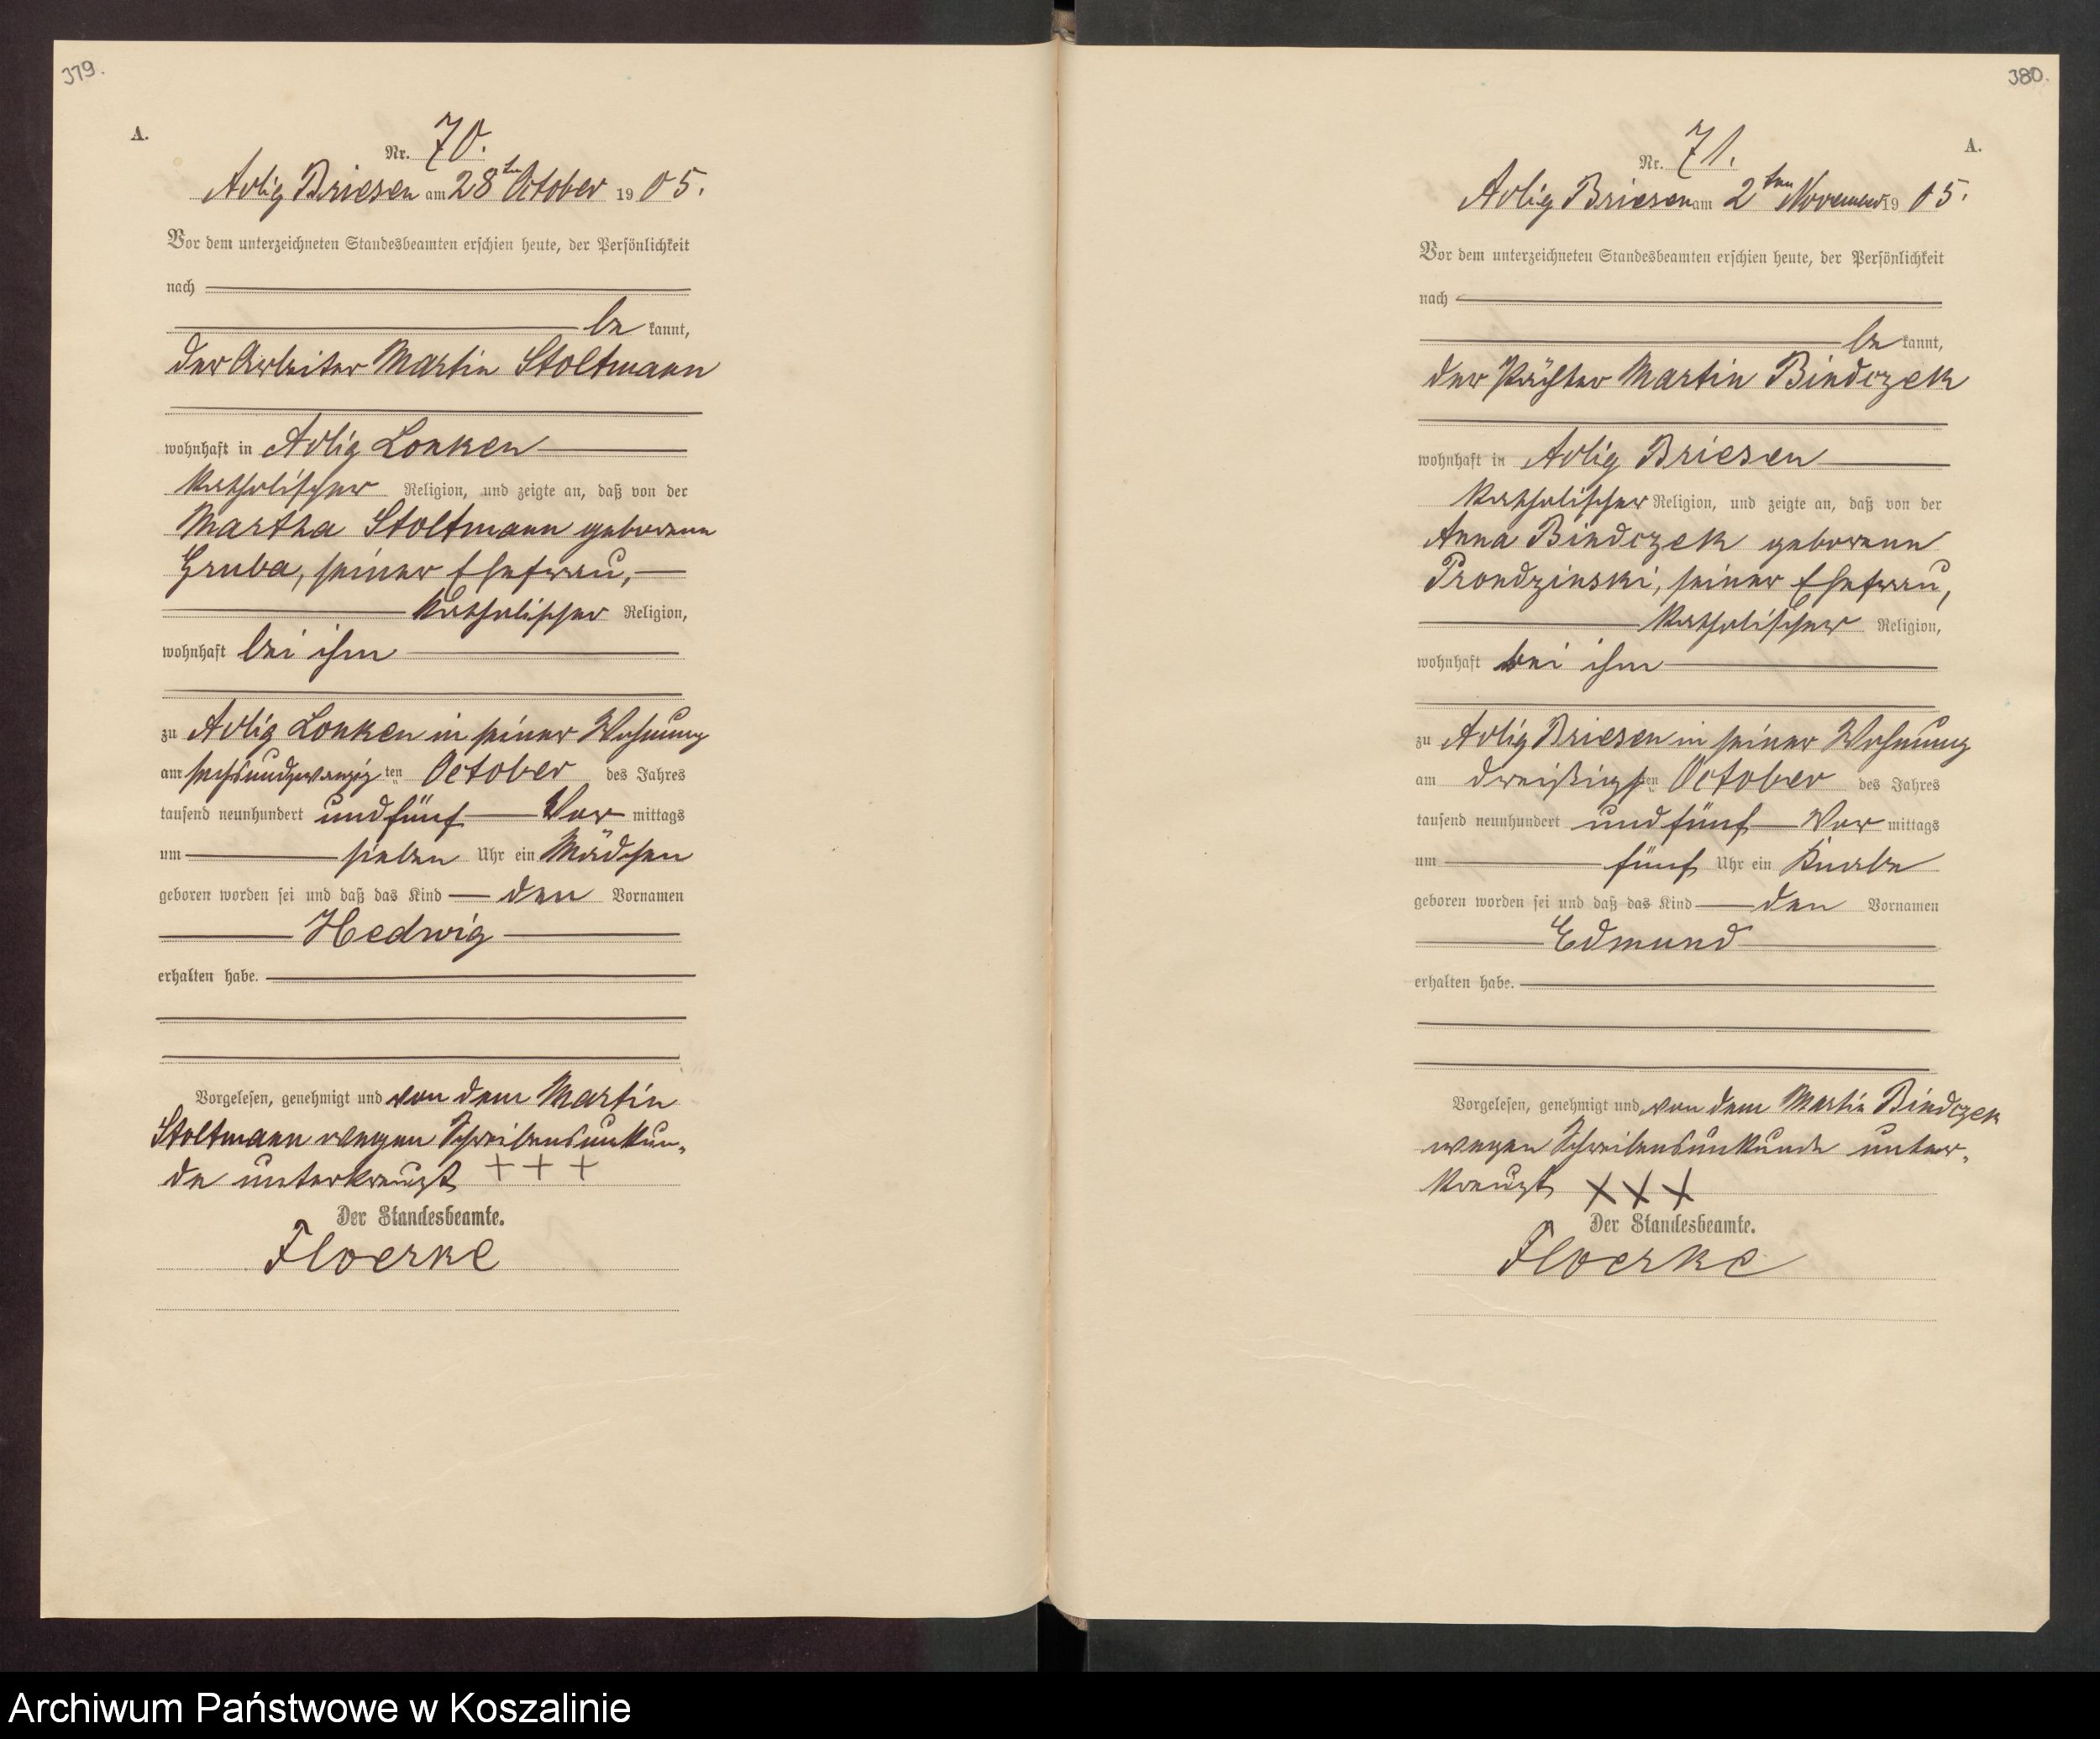 379.
A.
Nr. 70.
Adlig Briesen am 28ten October 1905.
Vor dem unterzeichneten Standesbeamten erschien heute, der Persönlichkeit
nach
be kannt,
der Arbeiter Martin Stoltmann
wohnhaft in Adlig Lonken
katholischer Religion, und zeigte an, daß von der
Martha Stoltmann geborene
Gruba, seiner Ehefrau,
katholischer Religion,
wohnhaft bei ihm
zu Adlig Lonken in seiner Wohnung
am sechsundzwanzig ten October des Jahres
tausend neunhundert und fünf Vor mittags
um sieben Uhr ein Mädchen
geboren worden sei und daß das Kind den Vornamen
Hedwig
erhalten habe.
Vorgelesen, genehmigt und von dem Martin
Stoltmann wegen Schreibensunkun-
de unterkreuzt + + +
Der Standesbeamte.
Floerke
380.
A.
Nr. 71.
Adlig Briesen am 2ten November 1905.
Vor dem unterzeichneten Standesbeamten erschien heute, der Persönlichkeit
nach
be kannt,
der Pächter Martin Bindczek
wohnhaft in Adlig Briesen
katholischer Religion, und zeigte an, daß von der
Anna Bindczek geborene
Prondzinski, seiner Ehefrau,
katholischer Religion,
wohnhaft bei ihm
zu Adlig Briesen in seiner Wohnung
am dreißigsten October des Jahres
tausend neunhundert und fünf Vor mittags
um fünf Uhr ein Knabe
geboren worden sei und daß das Kind den Vornamen
Edmund
erhalten habe.
Vorgelesen, genehmigt und von dem Martin Bindczek
wegen Schreibensunkunde unter-
kreuzt X X X
Der Standesbeamte.
Floerke
Archiwum Państwowe w Koszalinie